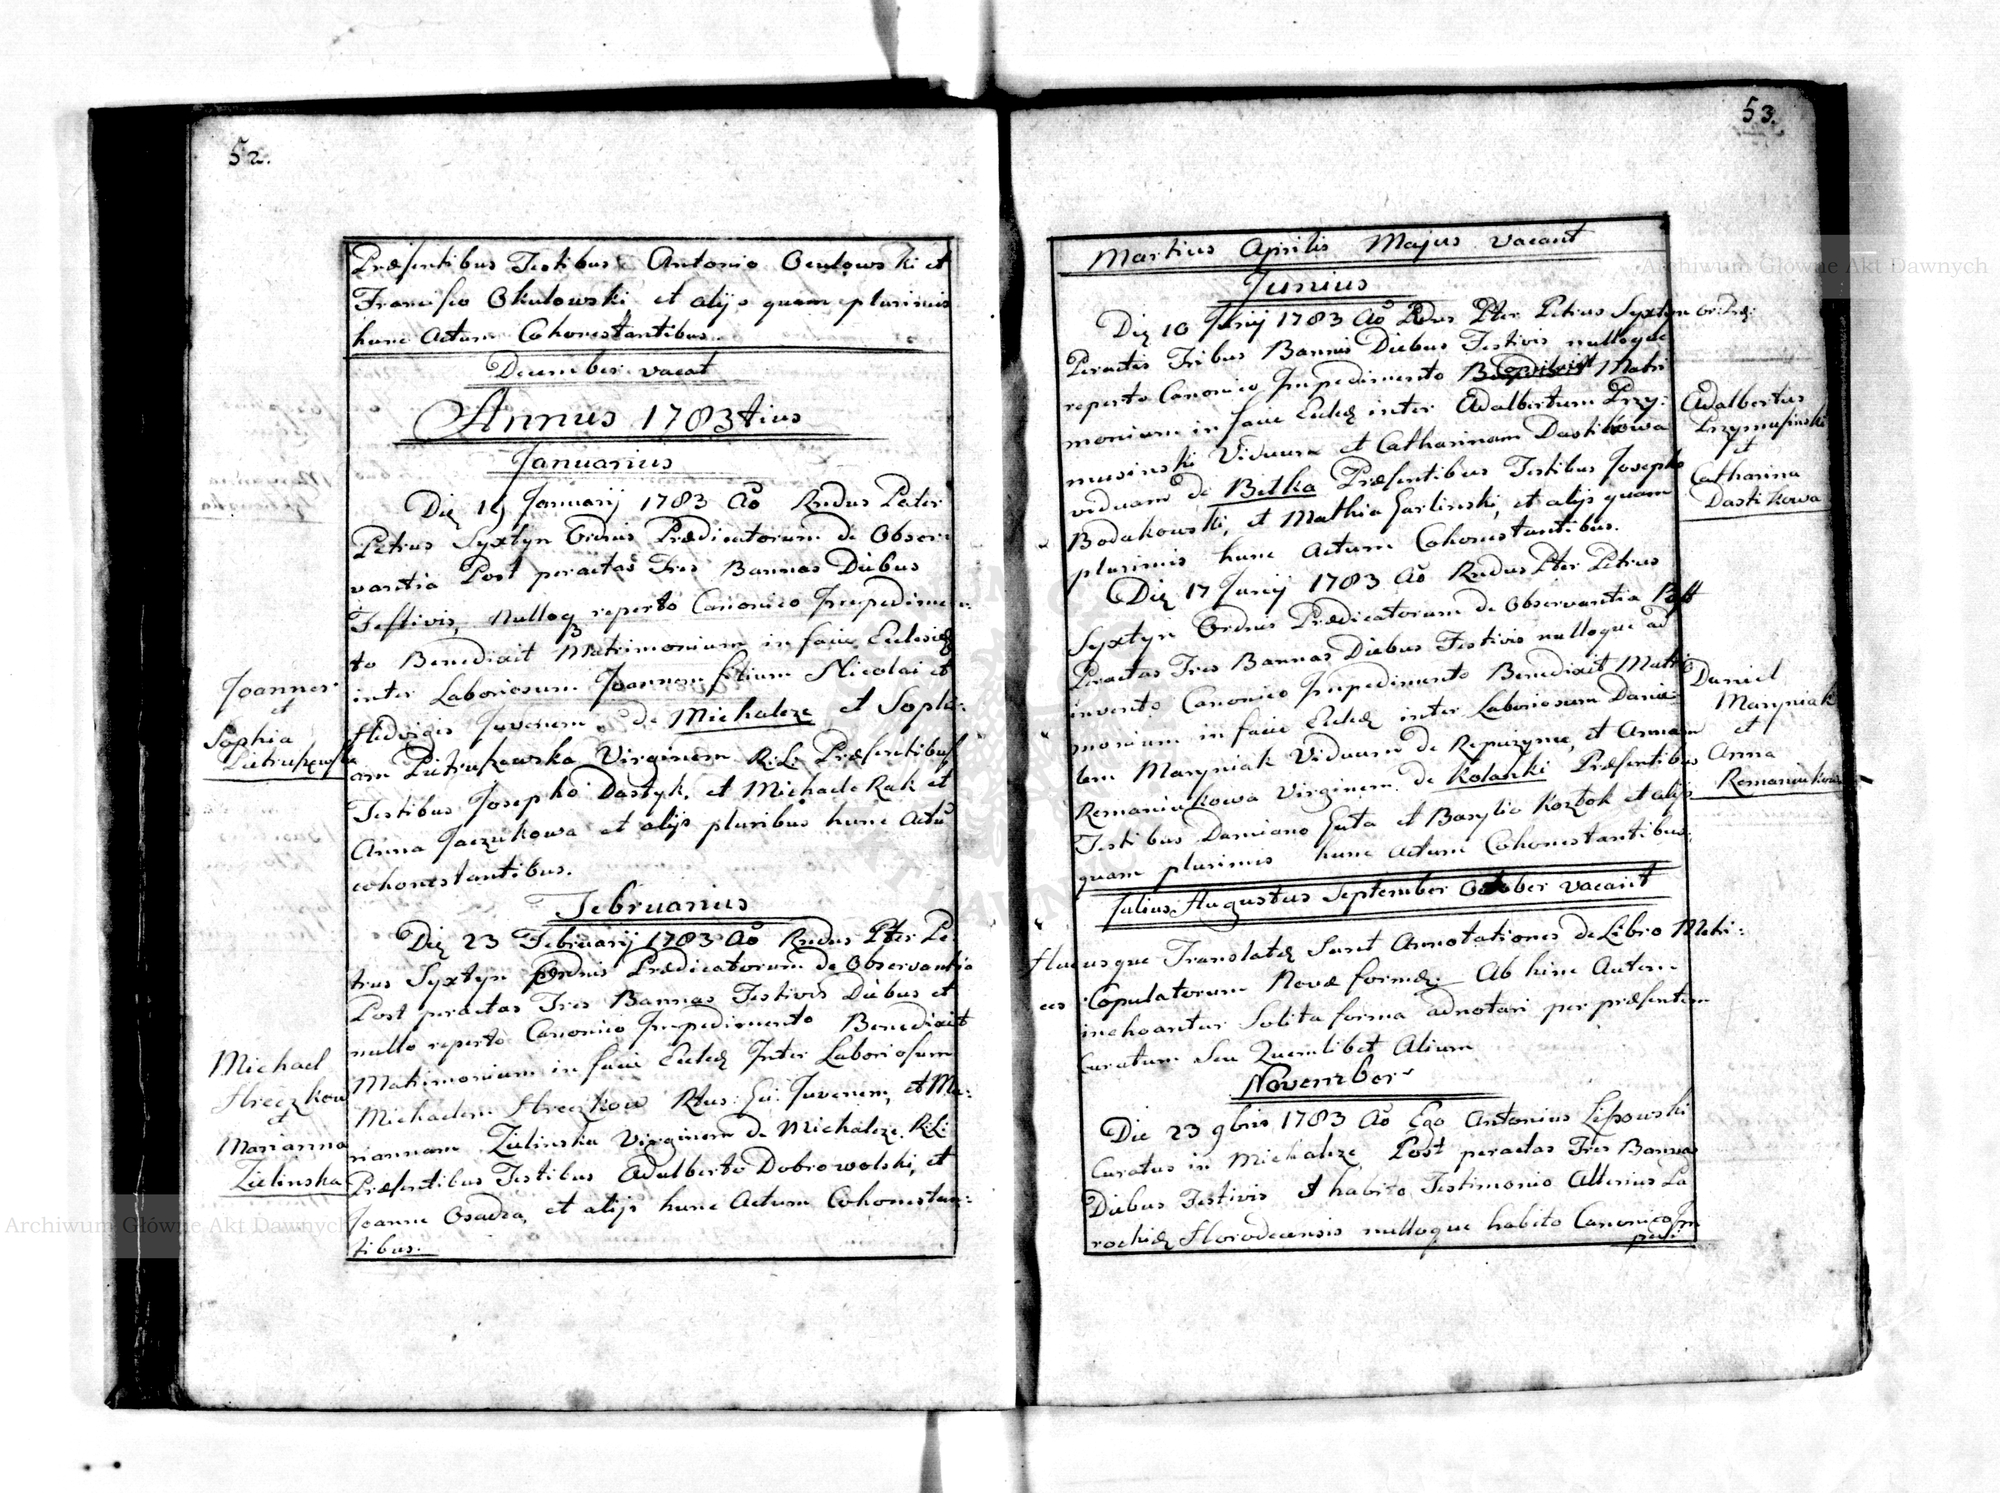 52.
Præsentibus Testibus Antonio Oculowski et
Francisco Okulowski et alijs quam plurimis
hunc Actum Cohonestantibus
December vacat
Annus 1783tius
Januarius
Die 19 Januarij 1783 Ao Rndus Pater
Petrus Syxtyn Ordnis Prædicatorum de Obser:
vantia Post peractas Tres Bannas Diebus
Festivis, Nulloq reperto Canonico Impedimen:
to Benedixit Matrimonium in facie Ecclesiæ
inter Laboriosum Joannem filium Nicolai et
Hedvigis Juvenem de Michalcze et Sophi:
am Pietruszewska Virginem R:L: Præsentibus
Testibus Josepho Dastyk, et Michaele Rak et
Anna Jaczukowa et alijs pluribus hunc Actu
cohonestantibus.
Joannes
et
Sophia
Pietruszewska
Februarius
Die 23 Februarij 1783 Ao Rndus Pter Pe:
trus Syxtyn Ordnis Prædicatorum de Observantia
Post peractas Tres Bannas Festivis Diebus et
nullo reperto Canonico Impedimento Benedixit
Matimonium in facie Eccleæ Inter Laboriosum
Michaelem Hreczkow Rtus: Gi: Juvenem, et Ma:
riannam Zielinska Virginem de Michalcze R:L:
Præsentibus Testibus Adalberto Dobrowolski, et
Joanne Osadza, et alijs hunc Actum Cohonestan:
tibus.
Michael
Hreczkow
et
Marianna
Zielinska
53.
Martius Aprilis Majus vacant
Junius
Die 10 Junij 1783 Ao Rdus Pter Petrus Syxtyn Or: Præ:
Peractis Tribus Bannis Diebus Festivis nulloque
reperto Canonico Impedimento Matri
monium in facie Eccleæ inter Adalbertum Przy:
musinski Viduum et Catharinam Dastikowa
viduam de Bielka Præsentibus Testibus Josepho
Bodakowski, et Mathia Garlinski, et alijs quam
plurimis hunc Actum Cohonestantibus.
Adalbertus
Przymusinski
et
Catharina
Dastikowa
Die 17 Junij 1783 Ao Rndus Pter Petrus
Syxtyn Ordnis Prædicatorum de Observantia Post
Peractas Tres Bannas Diebus Festivis nulloque ad
invento Canonico Impedimento Benedixit Matri
monium in facie Eccleæ inter Laboriosum Danie
lem Maryniak Viduum de Repuzynce, et Annam
Romaniukowa Virginem de Kolanki Præsentibus
Testibus Damiano Guta et Basylio Kozbok et alijs
quam plurimis hunc Actum Cohonestantibus.
Daniel
Maryniak
et
Anna
Romaniukowa
Julius Augustus September October vacant
Hucusque Translatæ Sunt Annotationes de Libro Metri:
ces Copulatorum Novæ formæ: Ab hinc Autem
inchoantur Solita forma adnotari per præsentem
Curatum Seu Quemlibet Alium
November
Die 23 9bris 1783 Ao Ego Antonius Lipowski
Curatus in Michalcze Post peractas Tres Bannas
Diebus Festivis et habito Testimonio Alterius Pa
rochiæ Horodecensis nulloque habito Canonico Im
ped:
Archiwum Główne Akt Dawnych
Archiwum Główne Akt Dawnych